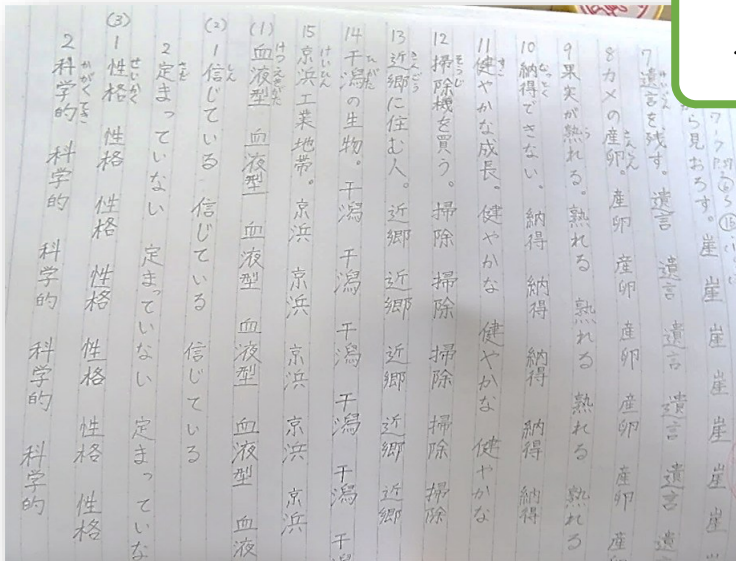 から見おろす。崖 崖 崖 崖 崖 崖
7遺言を残す。遺言 遺言 遺言 遺言 遺言 遺
8カメの産卵。産卵 産卵 産卵 産卵 産卵 産
9果実が熟れる。熟れる 熟れる 熟れる 熟れる
10納得できない。納得 納得 納得 納得 納得
11健やかな成長。健やかな 健やかな 健やかな
12掃除機を買う。掃除 掃除 掃除 掃除 掃除
13近郷に住む人。近郷 近郷 近郷 近郷 近郷
14干潟の生物。干潟 干潟 干潟 干潟 干潟 干
15京浜工業地帯。京浜 京浜 京浜 京浜 京浜
(1)血液型 血液型 血液型 血液型 血液型 血液
(2)1信じている 信じている 信じている
2定まっていない 定まっていない 定まっていな
(3)1性格 性格 性格 性格 性格 性格 性格
2科学的 科学的 科学的 科学的 科学的